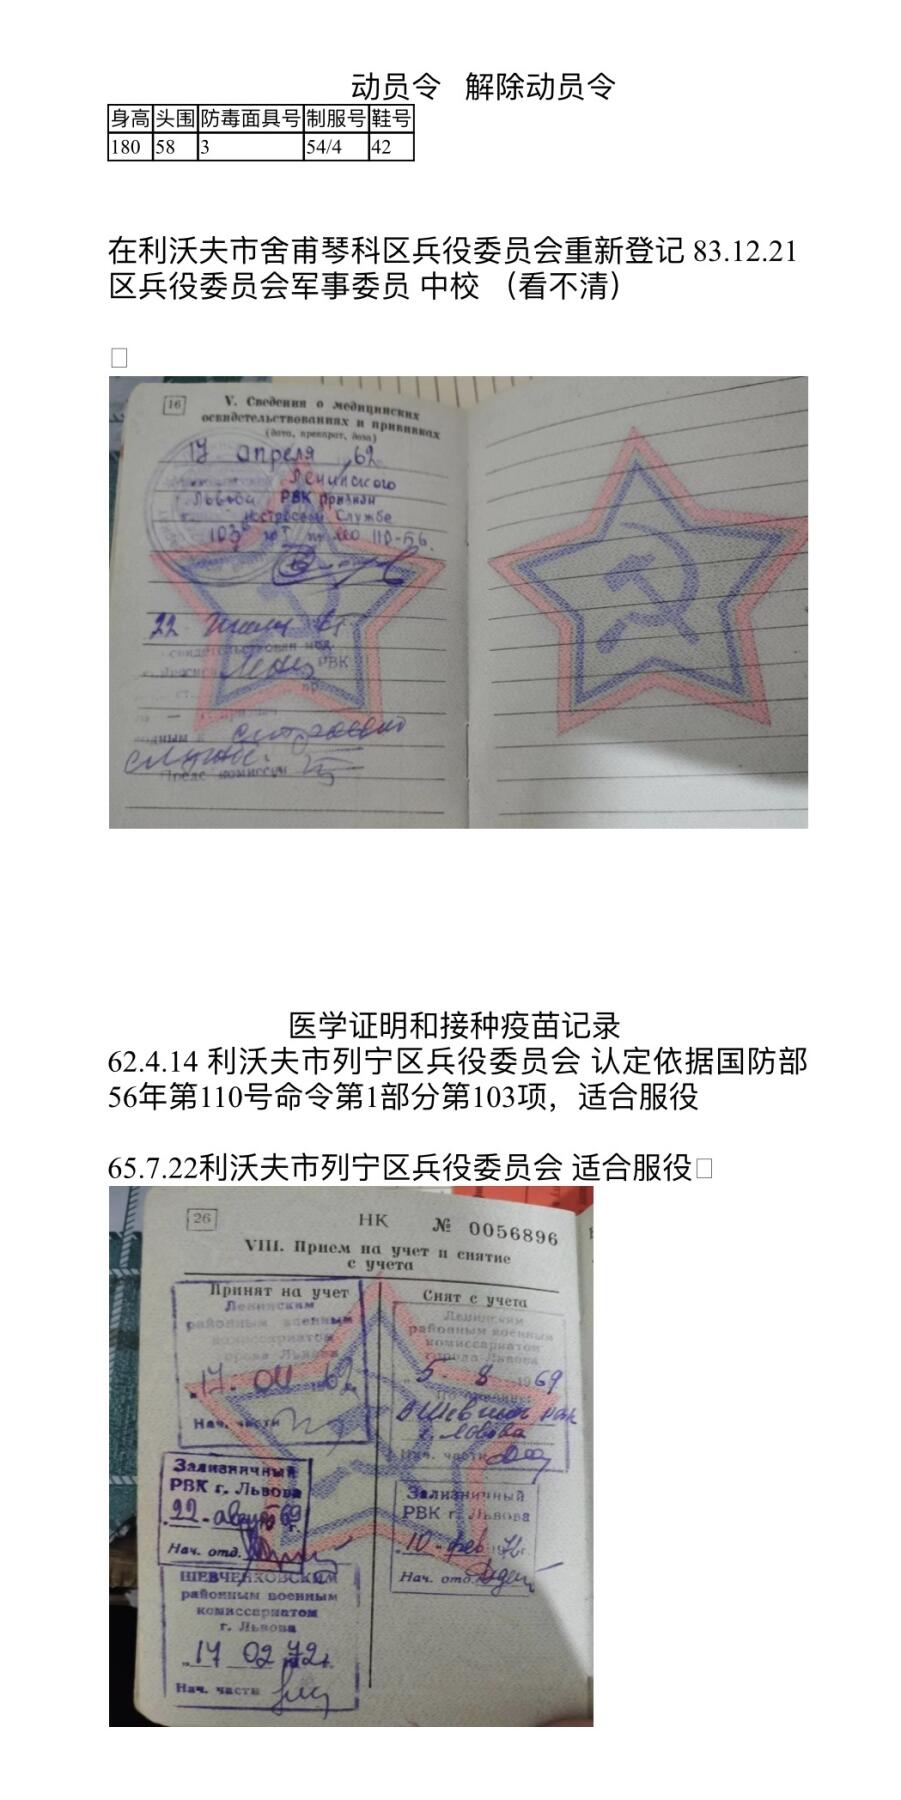 动员令 解除动员令
身高 头围 防毒面具号 制服号 鞋号
180 58 3 54/4 42
在利沃夫市舍甫琴科区兵役委员会重新登记 83.12.21
区兵役委员会军事委员 中校 （看不清）
16
V. Сведения о медицинских
освидетельствованиях и прививках
(дата, препарат, доза)
17 апреля 62
Ленинского
г. Львова РВК признан
Службе
110-56.
22
РВК
строевой
службе.
Пред. комиссии
医学证明和接种疫苗记录
62.4.14 利沃夫市列宁区兵役委员会 认定依据国防部
56年第110号命令第1部分第103项，适合服役
65.7.22利沃夫市列宁区兵役委员会 适合服役
26
НК № 0056896
VIII. Прием на учет и снятие
с учета
Принят на учет
Ленинским
районным военным
комиссариатом
города Львова
17. 04 62
Нач. части
Зализничный
РВК г. Львова
22 август 69 г.
Нач. отд.
ШЕВЧЕНКОВСКИМ
районным военным
комиссариатом
г. Львова
17 02 72 г.
Нач. части
Снят с учета
Ленинским
районным военным
комиссариатом
города Львова
5 8 1969
г. Львова
Нач. части
Зализничный
РВК г. Львова
10 фев 1972 г.
Нач. отд.